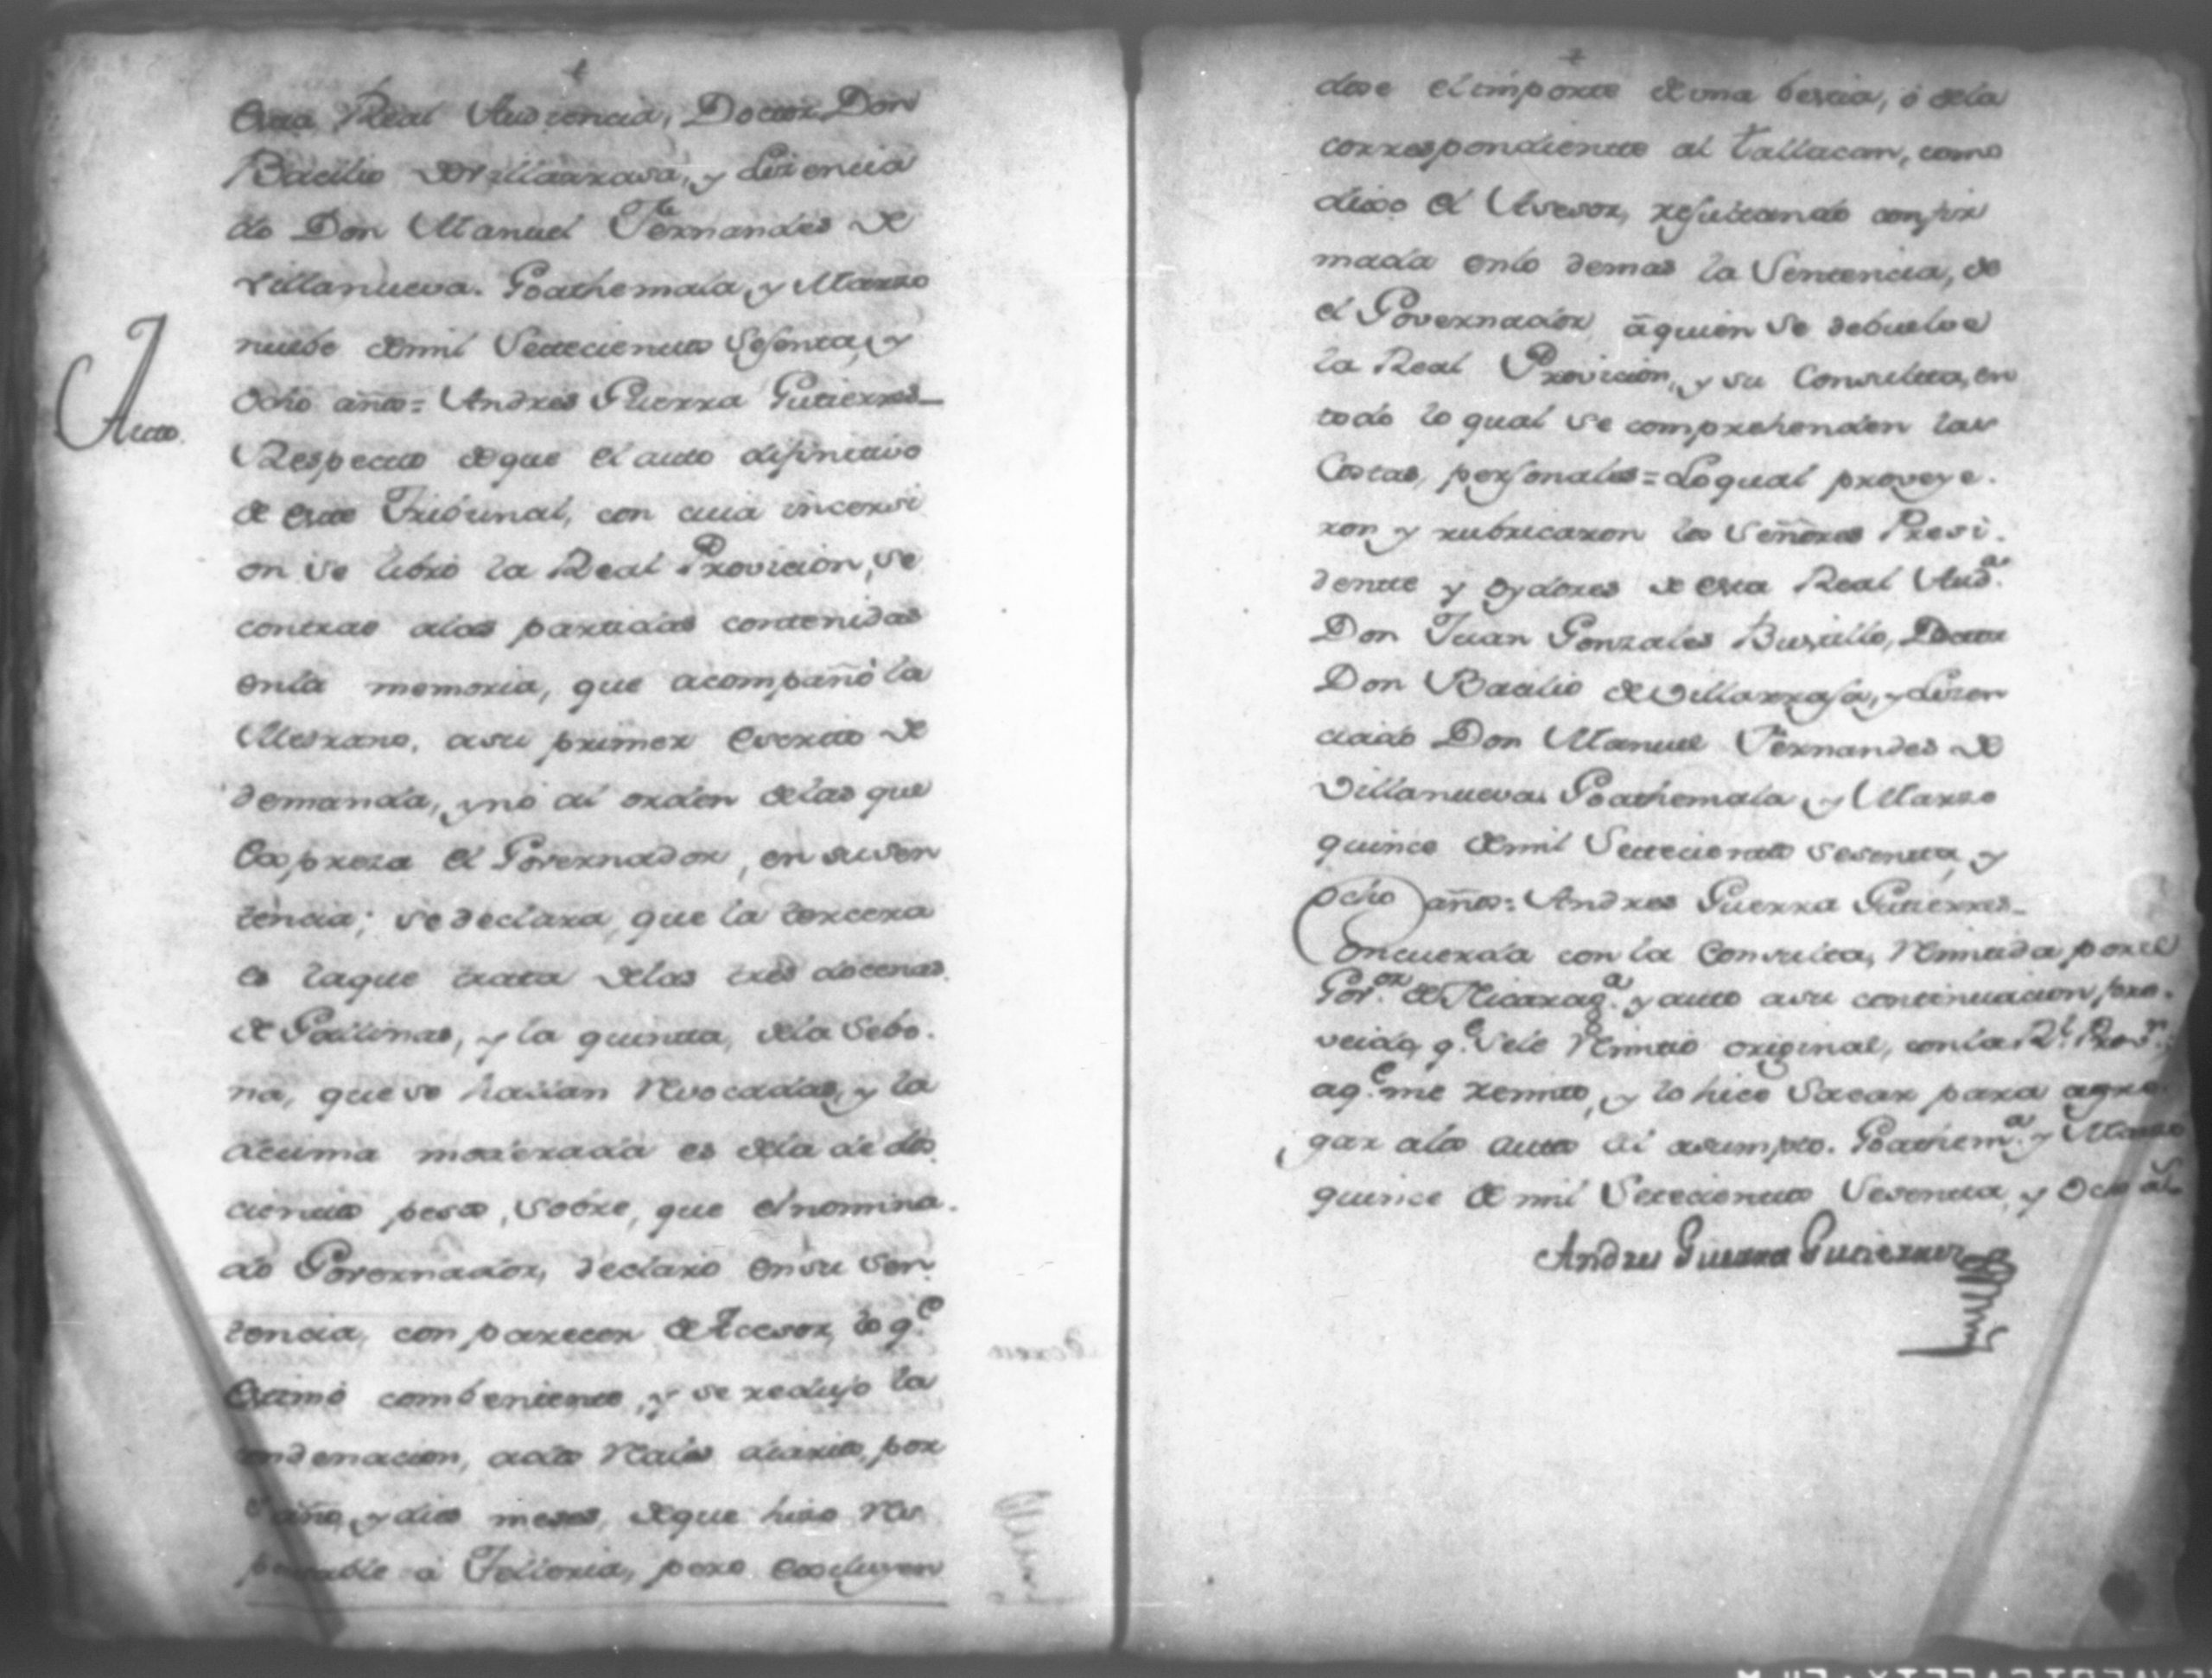 esta Real Audiencia, Doctor Don
Bacilio de Villarrasa, y Lizencia
do Don Manuel Fernandes de
Villanueva. Goathemala, y Marzo
nuebe de mil Settecientos Sesenta, y
Ocho años = Andres Guerra Gutierres_
Auto.
Respecto de que el auto difinitivo
de este Tribunal, con cuia incersi
on se libró la Real Provicion, se
contrae alas partidas contenidas
enla memoria, que acompañó la
asu primer Escrito de
demanda, y no al orden delas que
Expreza el Governador, en su sen
tencia; se declara, que la tercera
es la que trata delas tres docenas
de Gallinas, y la quinta, dela Sebo.
na, que se hallan Revocadas, y la
decima moderada es dela de dos
cientos pesos, sobre, que el nomina.
do Governador, declaró en su Sen
tencia, con parecer de Acesor, lo q.e
Estimó combeniente, y se redujo la
ondenacion, a dos Reales diarios, por
año, y dies meses, de que hizo Res
ponsable a Telleria, pero Excluyen
dose el importe de una bestia, ó dela
correspondiente al tallacan, como
dixo el Asesor, resultando confir
mada enlo demas la Sentencia, de
el Governador, á quien se debuelve
la Real Provicion, y su Consulta, en
todo lo qual se comprehenden las
Costas, personales = Lo qual proveye.
ron y rubricaron los Señores Presi.
dente y Oydores de esta Real Aud.a
Don Juan Gonzales Bustillo, Doctor
Don Bacilio de Villarrasa, y Lizen
ciado Don Manuel Fernandes de
Villanueva. Goathemala, y Marzo
quince de mil Settecientos Sesenta, y
Ocho años = Andres Guerra Gutierres_
Concuerda con la Consulta, Remitida por el
Gov.or de Nicarag.a y auto asu continuacion pro.
veido, q.e se le Remitió original, con la R.l Prov.n
aq.e me remito, y lo hice Sacar para agre.
gar alos autos del asumpto. Goathem.a y Marzo
quince de mil Settecientos Sesenta, y Ocho a.s
Andres Guerra Gutierres